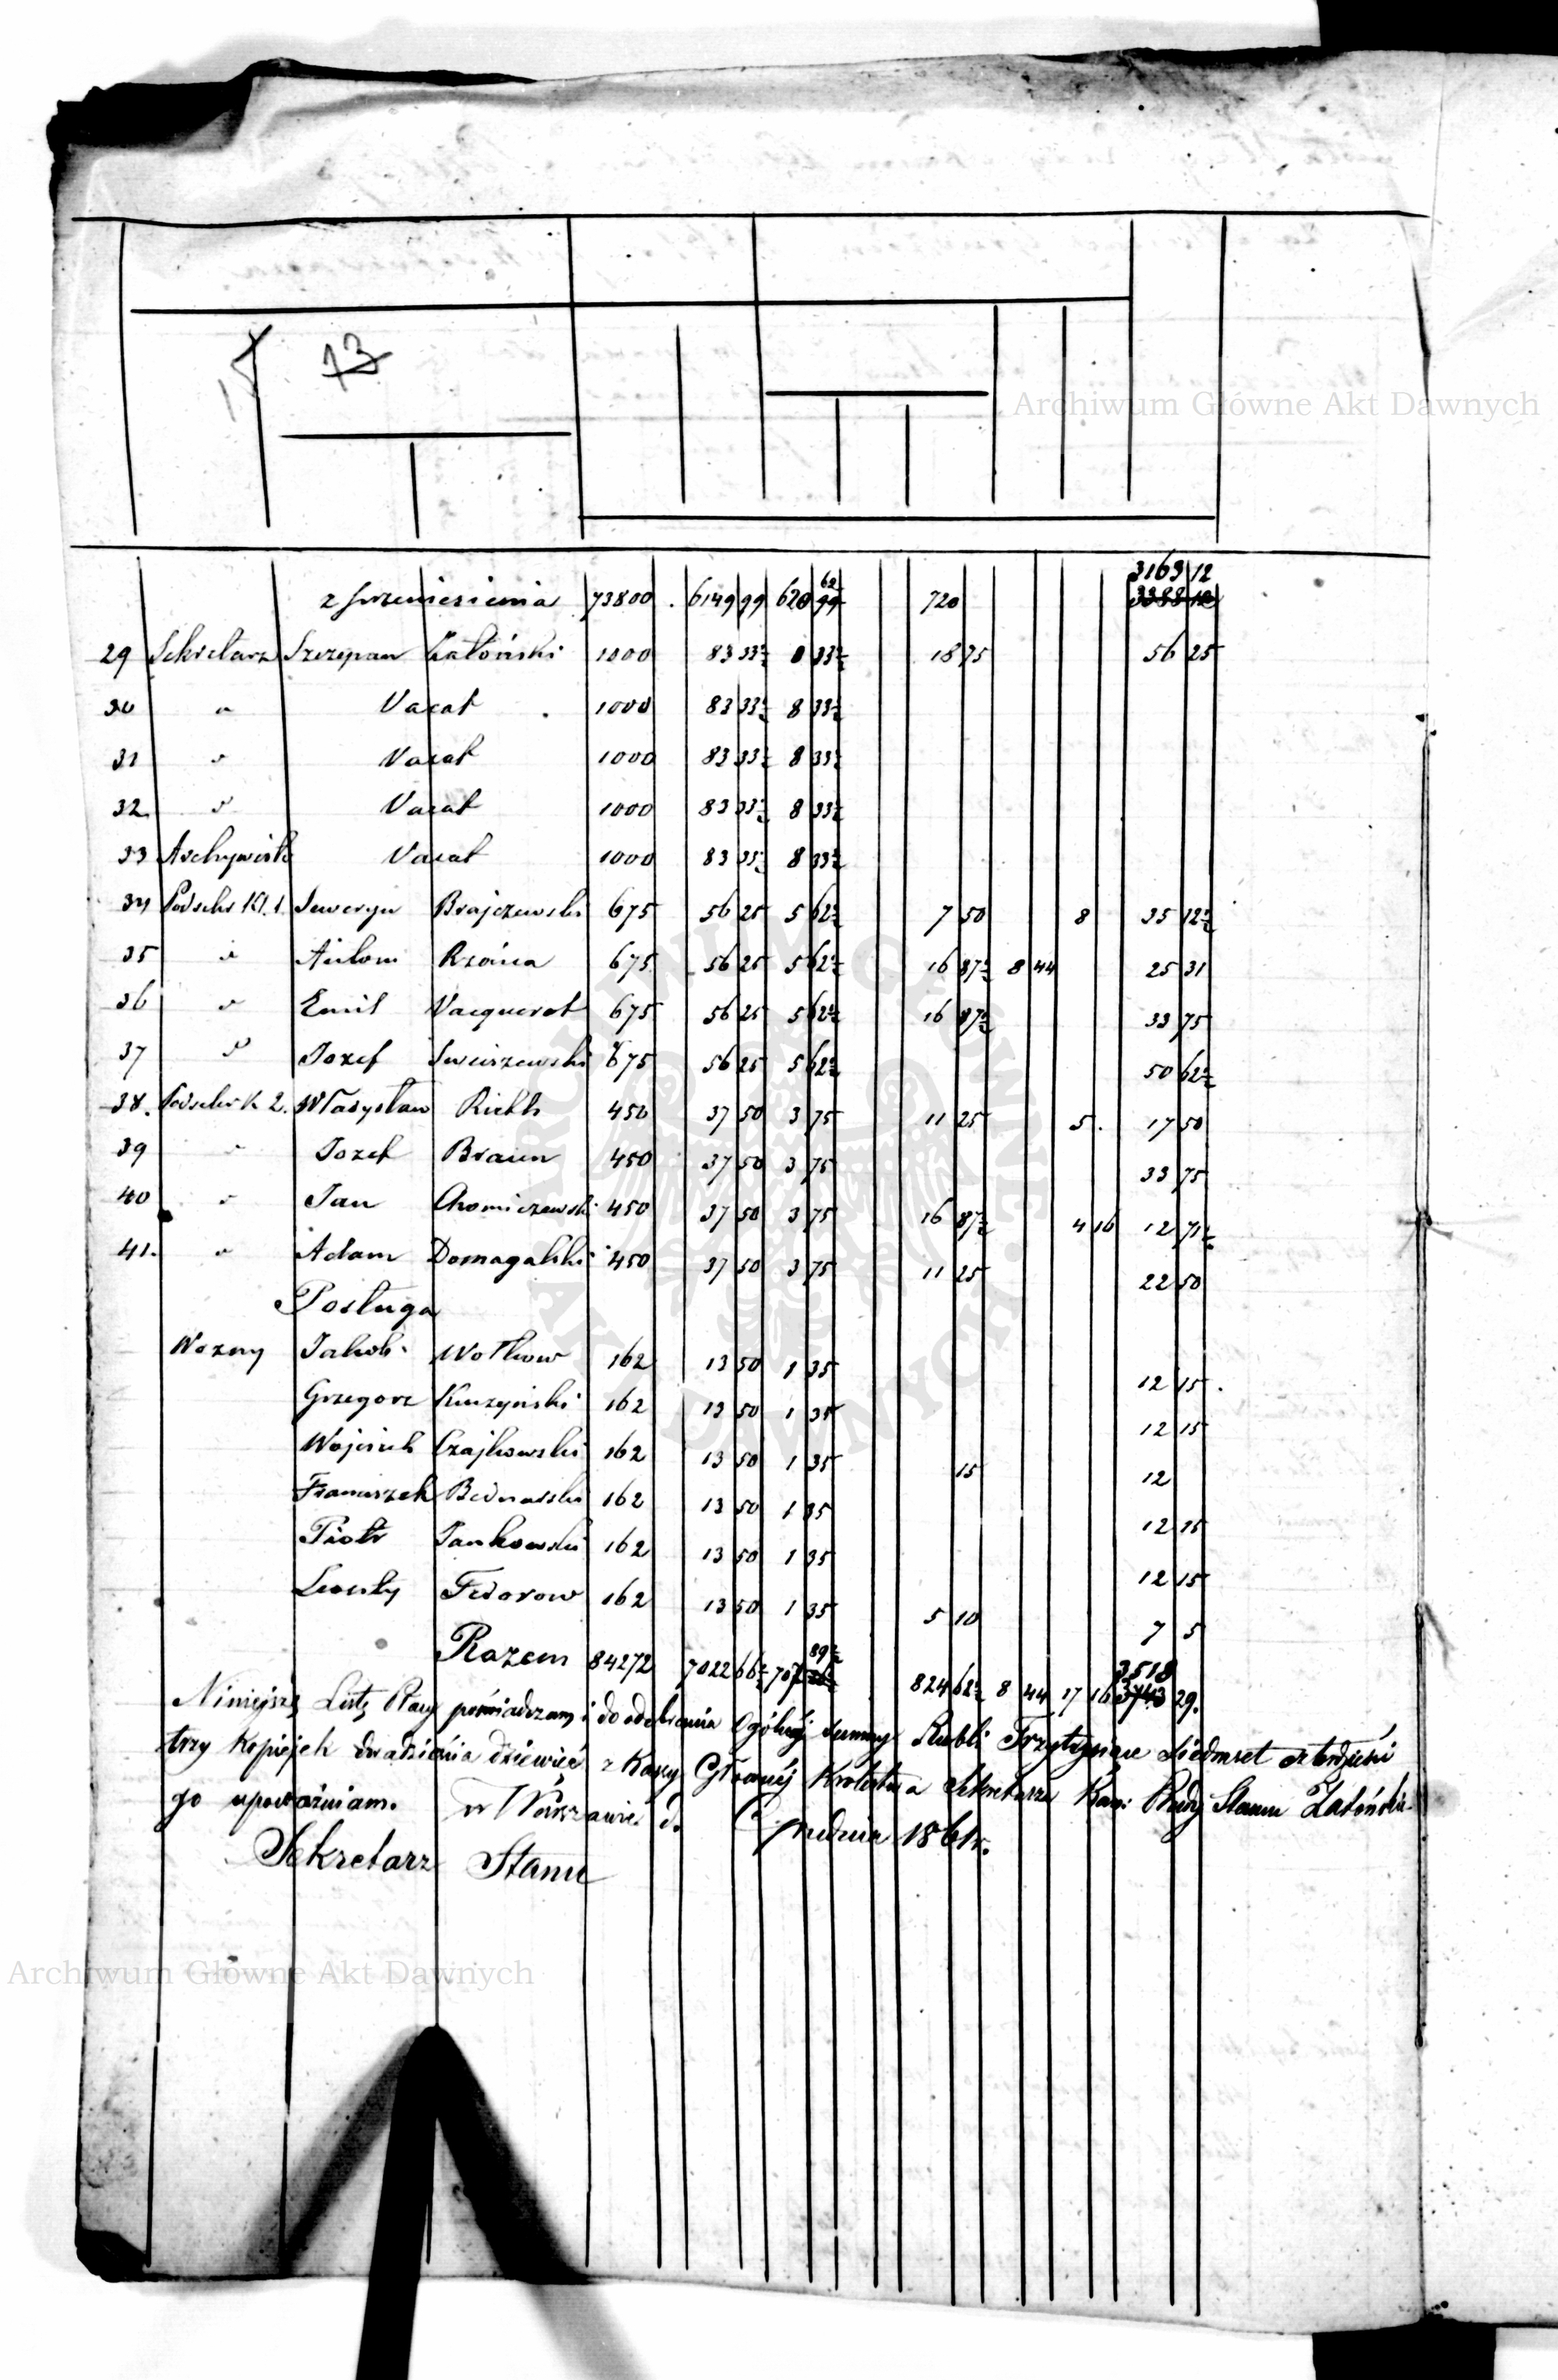 73
z przeniesienia 73800 . 6149 99 620 62 99 720 3169 12 3388 12
29 Sekretarz Szczepan Załoński 1000 83 33 1/2 8 33 1/2 18 75 56 25
30 " Vacat 1000 83 33 1/2 8 33 1/2
31 " Vacat 1000 83 33 1/2 8 33 1/2
32 " Vacat 1000 83 33 1/2 8 33 1/2
33 Archywista Vacat 1000 83 33 1/2 8 33 1/2
34 Podsekr Kl. 1. Seweryn Brajczewski 675 56 25 5 62 1/2 7 50 8 35 12 1/2
35 " Antoni Rzońca 675 56 25 5 62 1/2 16 87 1/2 8 44 25 31
36 " Emil Vacqueret 675 56 25 5 62 1/2 16 87 1/2 33 75
37 " Jozef Swiszewski 675 56 25 5 62 1/2 50 62 1/2
38. Podsekr K 2. Władysław Rickh 450 37 50 3 75 11 25 5. 17 50
39 " Jozef Braun 450 37 50 3 75 33 75
40 " Jan Chomiczewski 450 37 50 3 75 16 87 1/2 4 16 12 71 1/2
41. " Adam Domagalski 450 37 50 3 75 11 25 22 50
Posługa
Wozny Jakob Wołkow 162 13 50 1 35 12 15.
Grzegorz Kuczyński 162 13 50 1 35 12 15
Wojciech Czajkowski 162 13 50 1 35 15 12
Franciszek Bednarski 162 13 50 1 35 12 15
Piotr Jankowski 162 13 50 1 35 12 15
Leonty Fedorow 162 13 50 1 35 5 10 7 5
Razem 84272 7022 66 1/2 707 89 1/2 824 62 1/2 8 44 17 16 3518 3743 29.
Niniejszą Listę Płacy poświadczam i do odebrania Ogólnéj Summy Rubli Trzytysiące Siedmset czterdzieści
trzy Kopiejek dwadzieścia dziewięć z Kassy Głównéj Krolestwa Sekretarza Kanc: Rady Stanu Załońskie-
go upoważniam. w Warszawie d. Grudnia 1861 r.
Sekretarz Stanu
Archiwum Główne Akt Dawnych
Archiwum Główne Akt Dawnych
ARCHIWUM GŁÓWNE AKT DAWNYCH